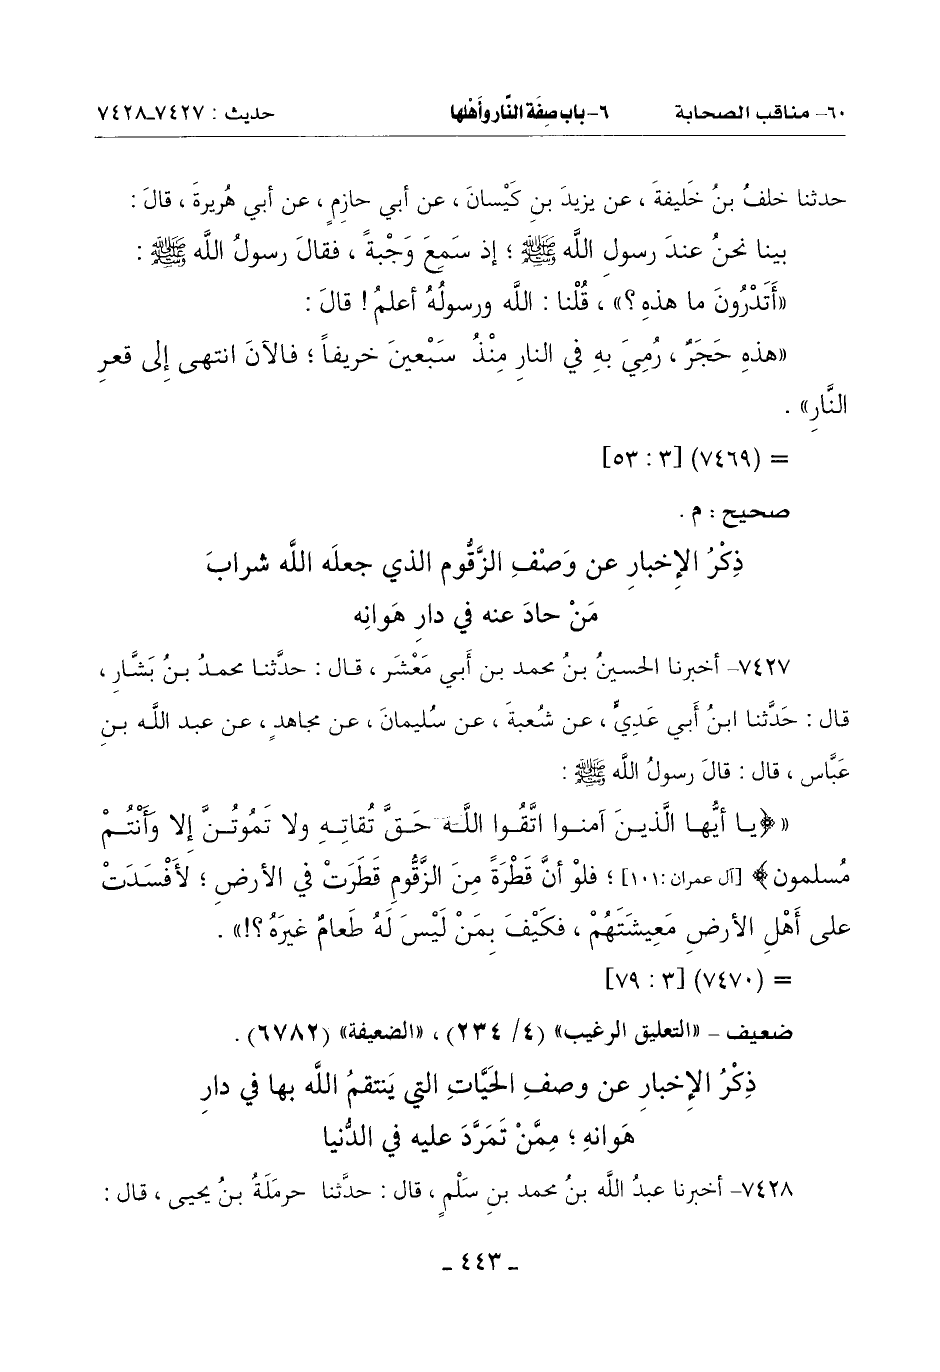 ٦٠- مناقب الصحابة ٦- باب صِفَة النَّار وأَهْلها حديث : ٧٤٢٧-٧٤٢٨
حدثنا خلفُ بنُ خَليفةَ ، عن يزيدَ بنِ كَيْسانَ ، عن أبي حازِمٍ ، عن أبي هُريرةَ ، قالَ :
بينا نحنُ عندَ رسول اللَّه ﷺ ؛ إذ سَمِعَ وَجْبةً ، فقالَ رسولُ اللَّه ﷺ :
«أَتَدْرُونَ ما هذهِ ؟» ، قُلْنا : اللَّه ورسولُهُ أعلمُ ! قالَ :
«هذهِ حَجَرٌ ، رُمِيَ بهِ في النارِ مِنْذُ سَبْعينَ خريفاً ؛ فالآنَ انتهى إلى قعرِ
النَّارِ» .
= (٧٤٦٩) [٣ : ٥٣]
صحيح : م .
ذِكْرُ الإخبارِ عن وَصْفِ الزَّقُّومِ الذي جعلَه اللَّه شرابَ
مَنْ حادَ عنه في دارِ هَوانِه
٧٤٢٧- أخبرنا الحسينُ بنُ محمد بن أَبي مَعْشَر ، قـال : حدَّثنـا محمدُ بـنُ بَشَّارٍ ،
قال : حَدَّثنا ابنُ أَبي عَدِيٍّ ، عن شُعبةَ ، عن سُليمانَ ، عن مجاهدٍ ، عن عبد اللَّـه بـنِ
عَبَّاس ، قال : قالَ رسولُ اللَّه ﷺ :
«﴿يـا أَيُّهـا الَّذيـنَ آمنـوا اتَّقُـوا اللَّـهَ حَـقَّ تُقاتِـهِ ولا تَمُوتُـنَّ إلا وأَنْتُـمْ
مُسلمون﴾ [آل عمران :١٠١] ؛ فلوْ أنَّ قَطْرَةً مِنَ الزَّقُّومِ قَطَرَتْ في الأرضِ ؛ لأفْسَدَتْ
على أَهْلِ الأرضِ مَعِيشَتَهُمْ ، فكَيْفَ بِمَنْ لَيْسَ لَهُ طَعامٌ غيرَهُ ؟!» .
= (٧٤٧٠) [٣ : ٧٩]
ضعيف - «التعليق الرغيب» (٤/ ٢٣٤) ، «الضعيفة» (٦٧٨٢) .
ذِكْرُ الإخبارِ عن وصفِ الحَيَّاتِ التي يَنتقمُ اللَّه بها في دارِ
هَوانهِ ؛ مِمَّنْ تَمَرَّدَ عليه في الدُّنيا
٧٤٢٨- أخبرنا عبدُ اللَّه بنُ محمد بنِ سَلْمٍ ، قال : حدَّثنا حرملَةُ بنُ يحيى ، قال :
- ٤٤٣ -